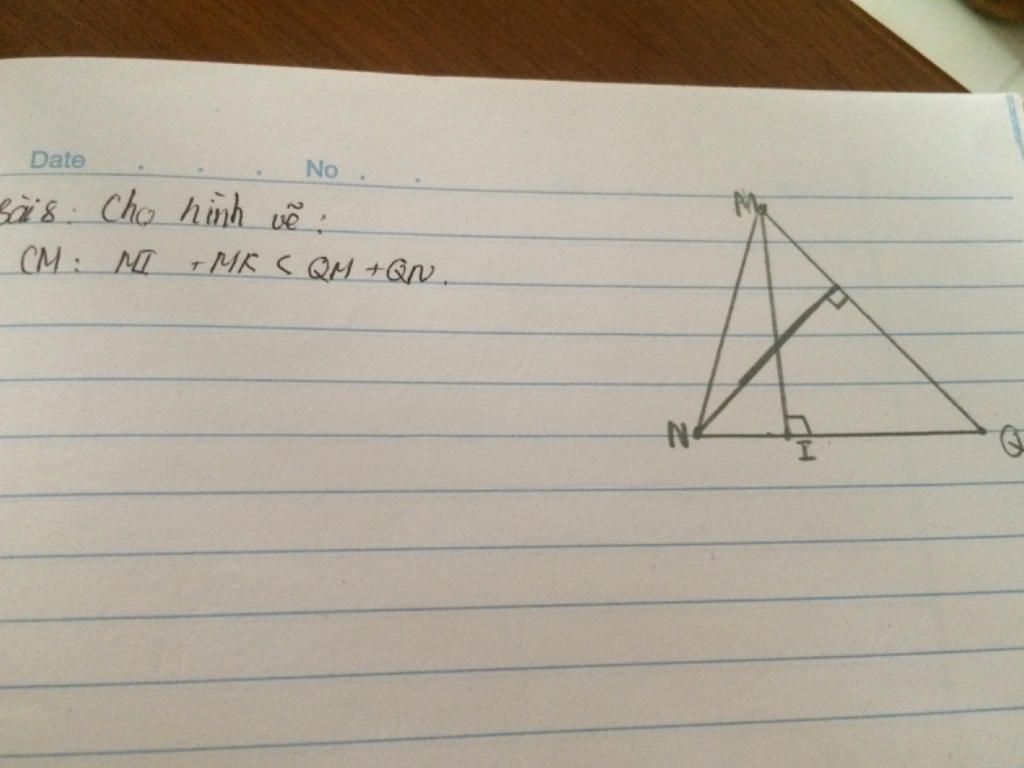 Date . . . No . .
Bài 8: Cho hình vẽ:
CM: MI + MK < QM + QN.
M
N
I
Q